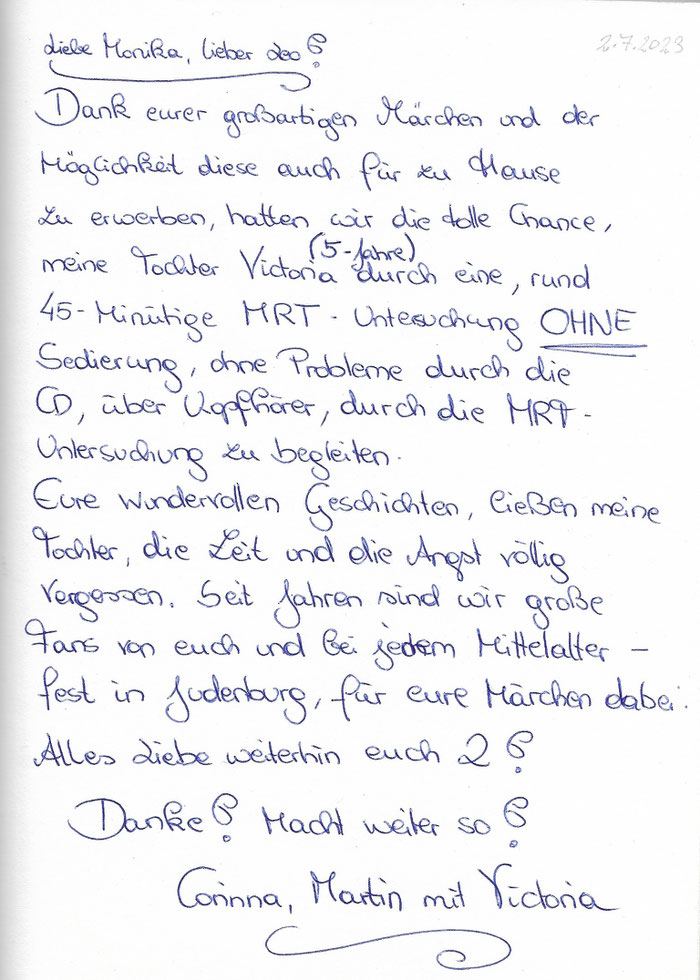 2.7.2023
Liebe Monika, lieber Leo!
Dank eurer großartigen Märchen und der
Möglichkeit diese auch für zu Hause
zu erwerben, hatten wir die tolle Chance,
meine Tochter Victoria (5-Jahre) durch eine, rund
45-Minütige MRT-Untersuchung OHNE
Sedierung, ohne Probleme durch die
CD, über Kopfhörer, durch die MRT-
Untersuchung zu begleiten.
Eure wundervollen Geschichten, ließen meine
Tochter, die Zeit und die Angst völlig
vergessen. Seit Jahren sind wir große
Fans von euch und bei jedem Mittelalter-
fest in Judenburg, für eure Märchen dabei.
Alles Liebe weiterhin euch 2!
Danke! Macht weiter so!
Corinna, Martin mit Victoria